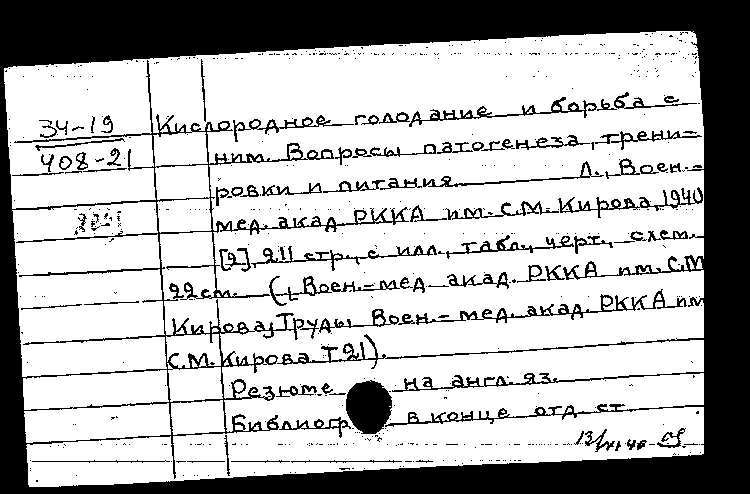 34-19
408-21
Кислородное голодание и борьба с
ним. Вопросы патогенеза, трени=
ровки и питания. Л., Воен.-
мед. акад РККА им. С.М. Кирова, 1940
[2], 211 стр., с илл., табл., черт., схем.
22 см. (Воен.-мед. акад. РККА им. С.М
Кирова, Труды Воен.-мед. акад. РККА им
С.М. Кирова. Т 21).
Резюме на англ. яз.
Библиогр в конце отд ст